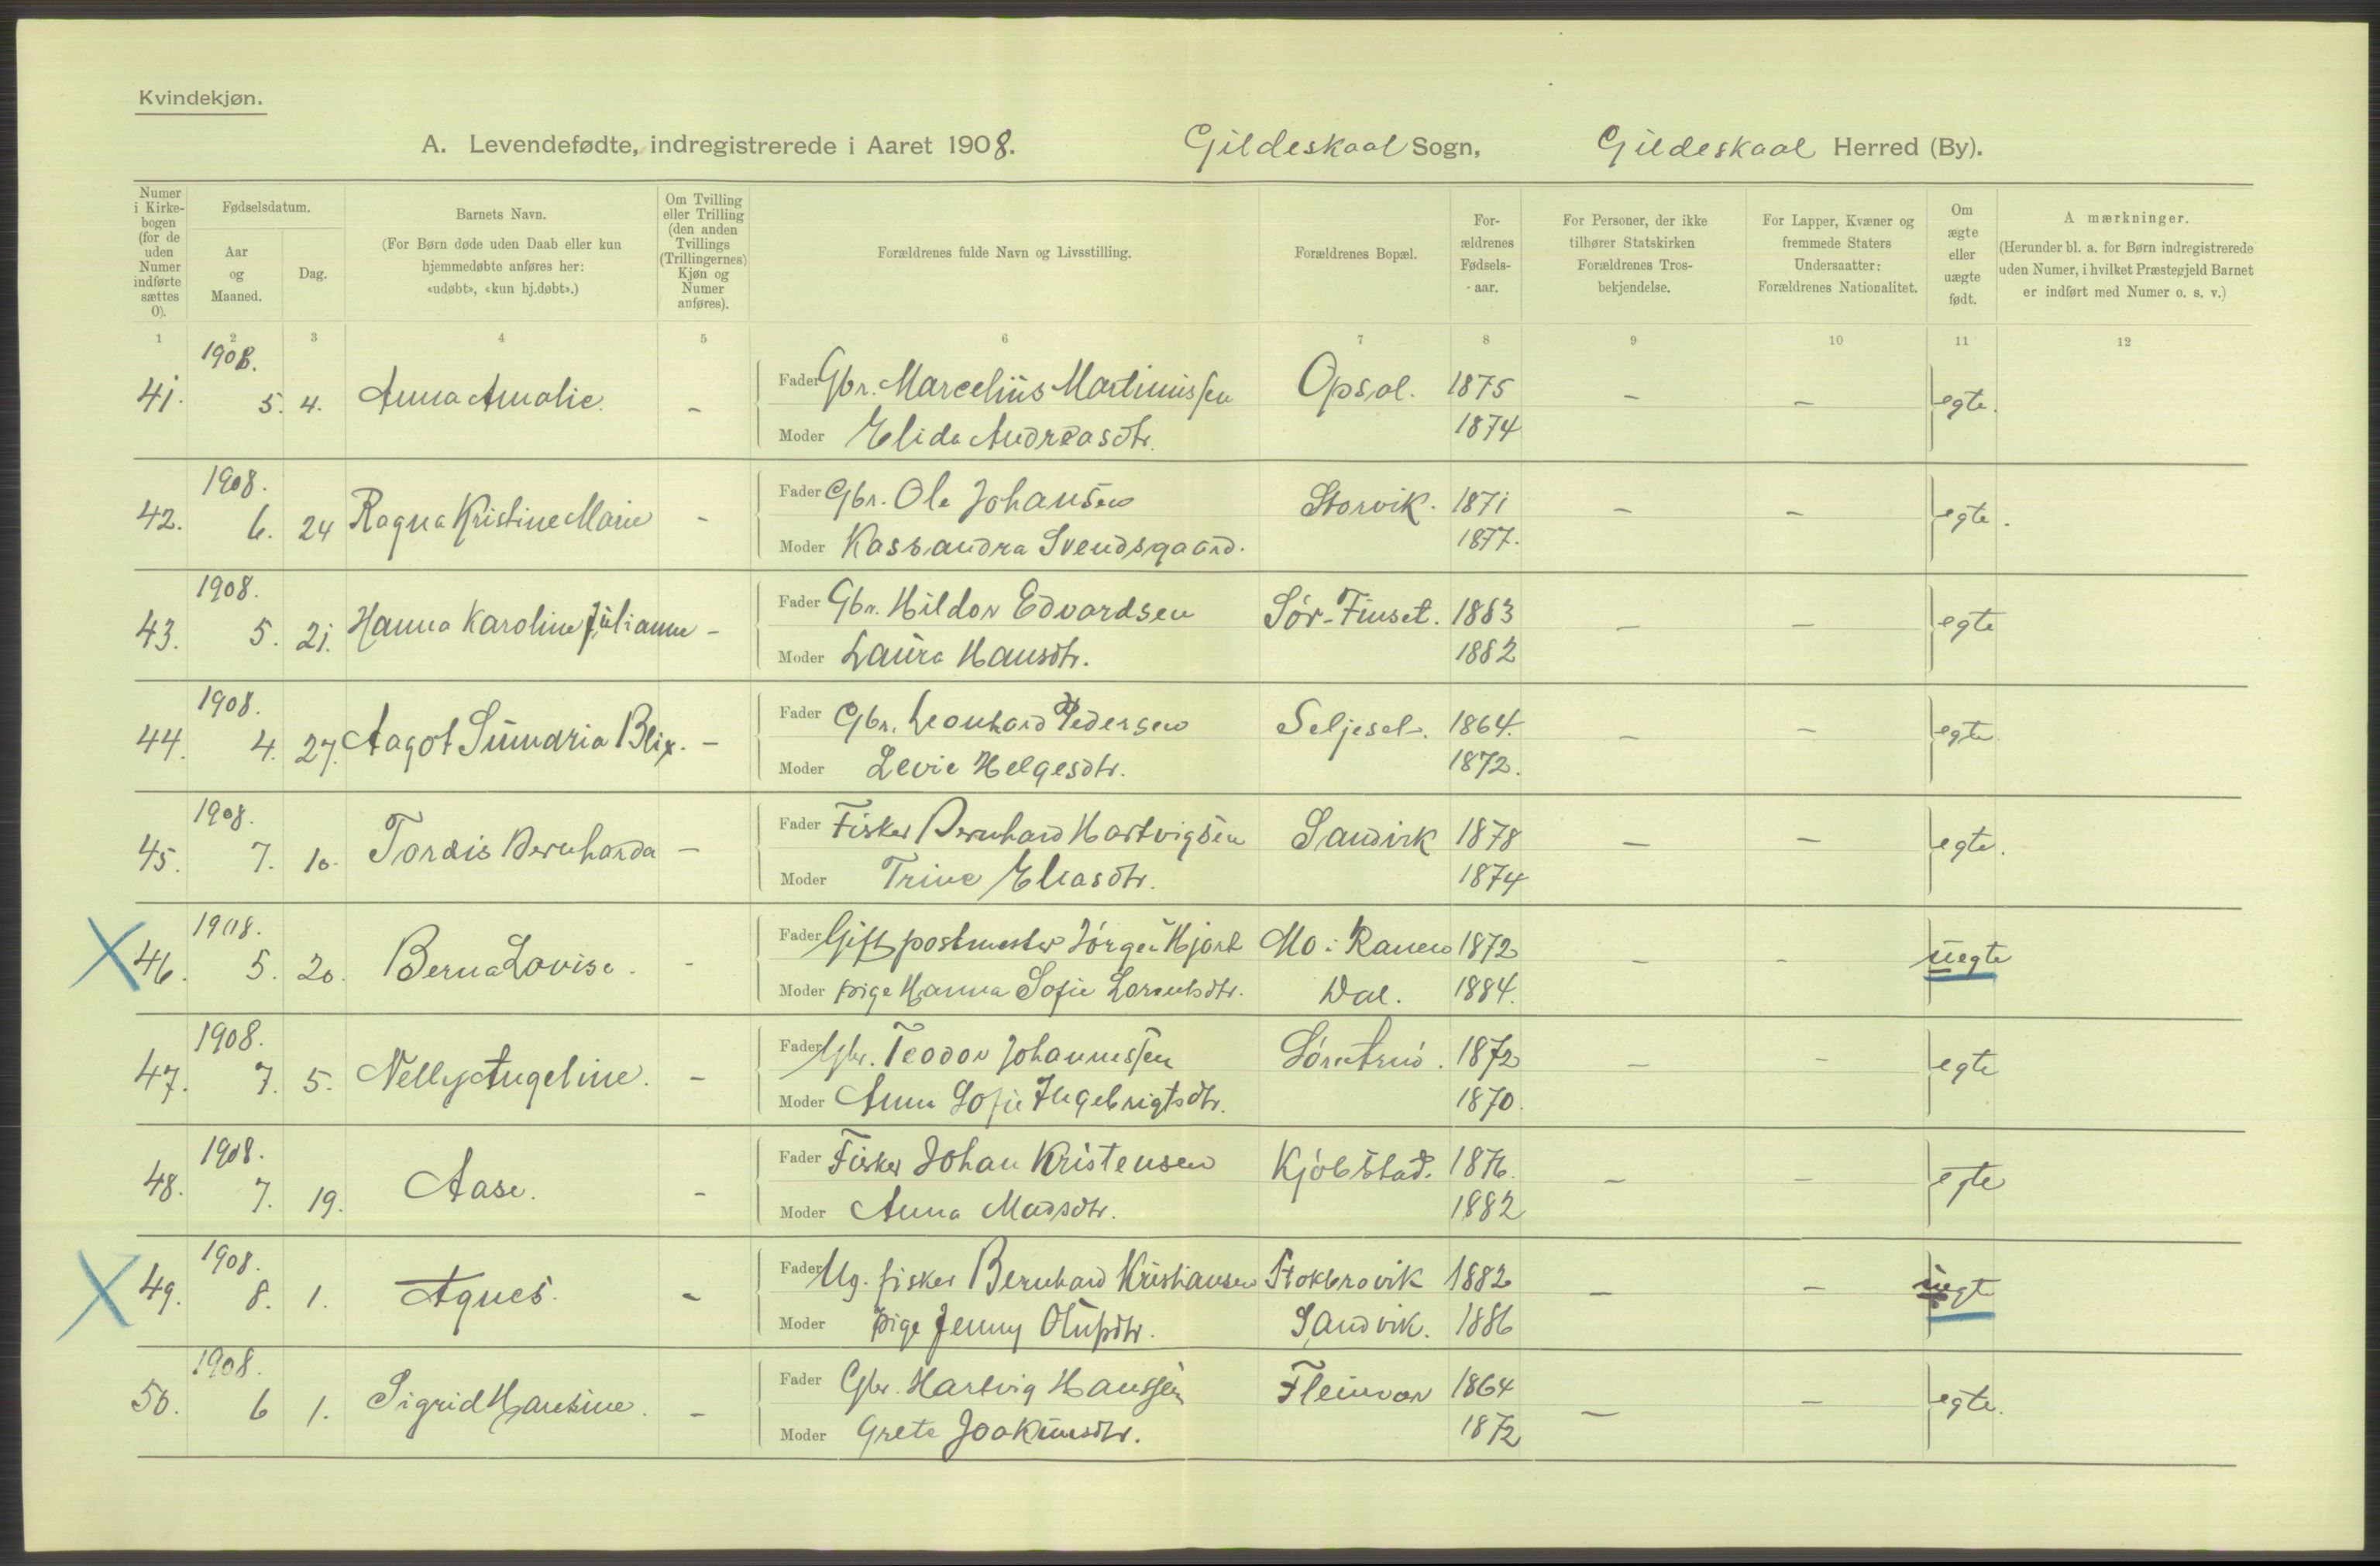 Kvindekjøn.
A. Levendefødte, indregistrerede i Aaret 1908. Gildeskaal Sogn, Gildeskaal Herred (By).
Numer i Kirkebogen (for de uden Numer indførte sættes 0).
Fødselsdatum.
Aar og Maaned.
Dag.
Barnets Navn.
(For Børn døde uden Daab eller kun hjemmedøbte anføres her: «udøbt», «kun hj.døbt».)
Om Tvilling eller Trilling (den anden Tvillings (Trillingernes) Kjøn og Numer anføres).
Forældrenes fulde Navn og Livsstilling.
Forældrenes Bopæl.
For-ældrenes Fødsels-aar.
For Personer, der ikke tilhører Statskirken Forældrenes Tros-bekjendelse.
For Lapper, Kvæner og fremmede Staters Undersaatter: Forældrenes Nationalitet.
Om ægte eller uægte født.
A mærkninger.
(Herunder bl. a. for Børn indregistrerede uden Numer, i hvilket Præstegjeld Barnet er indført med Numer o. s. v.)
1 2 3 4 5 6 7 8 9 10 11 12
1908.
41. 5. 4. Anna Amalie. - Fader Gbr. Marcelius Martinussen Opsal. 1875 - - egte.
Moder Elida Andreasdtr. 1874
1908.
42. 6. 24 Ragna Kristine Marie - Fader Gbr. Ole Johansen Storvik. 1871 - - egte.
Moder Kassandra Svendsgaard. 1877.
1908.
43. 5. 21. Hanna Karoline Julianne - Fader Gbr. Hildor Edvardsen Sør-Finset. 1883 - - egte
Moder Laura Hansdtr. 1882
1908.
44. 4. 27. Aagot Sumaria Blix. - Fader Gbr. Leonhard Pedersen Seljesel. 1864. - - egte
Moder Levie Helgesdtr. 1872.
1908.
45. 7. 10. Tordis Bernharda - Fader Fisker Bernhard Hartvigsen Sandvik 1878 - - egte.
Moder Trine Eliasdtr. 1874
1908.
46. 5. 20. Berna Lovise. - Fader Gift postmester Jørgen Hjort Mo i Ranen 1872 - - uegte
Moder pige Hanna Sofie Lorentsdtr. Dal. 1884.
1908.
47. 7. 5. Nelly Angeline. - Fader Gbr. Teodor Johannessen Sørarnø. 1872 - - egte
Moder Anna Sofie Ingebrigtsdtr. 1870.
1908.
48. 7. 19. Aase. - Fader Fisker Johan Kristensen Kjøbstad. 1876. - - egte
Moder Anna Madsdtr. 1882
1908.
49. 8. 1. Agnes. - Fader Ug. fisker Bernhard Kristiansen Stokbrovik 1882 - - uegte
Moder pige Jenny Olufsdtr. Sandvik. 1886
1908.
50. 6 1. Sigrid Hansine. - Fader Gbr. Hartvig Hanssen Fleinvær 1864 - - egte.
Moder Grete Joakimsdtr. 1872